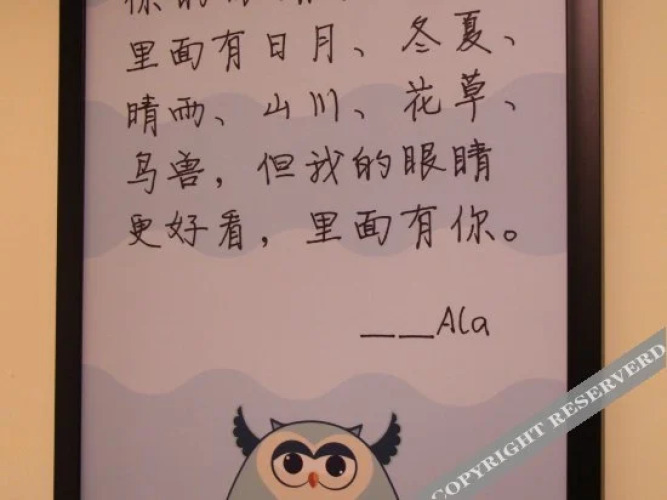 里面有日月、冬夏、
晴雨、山川、花草、
鸟兽，但我的眼睛
更好看，里面有你。
__ __Ala
COPYRIGHT RESERVERD